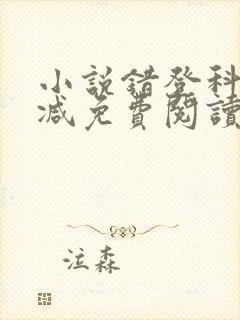 小説錯登科
減免費閱讀
泣森